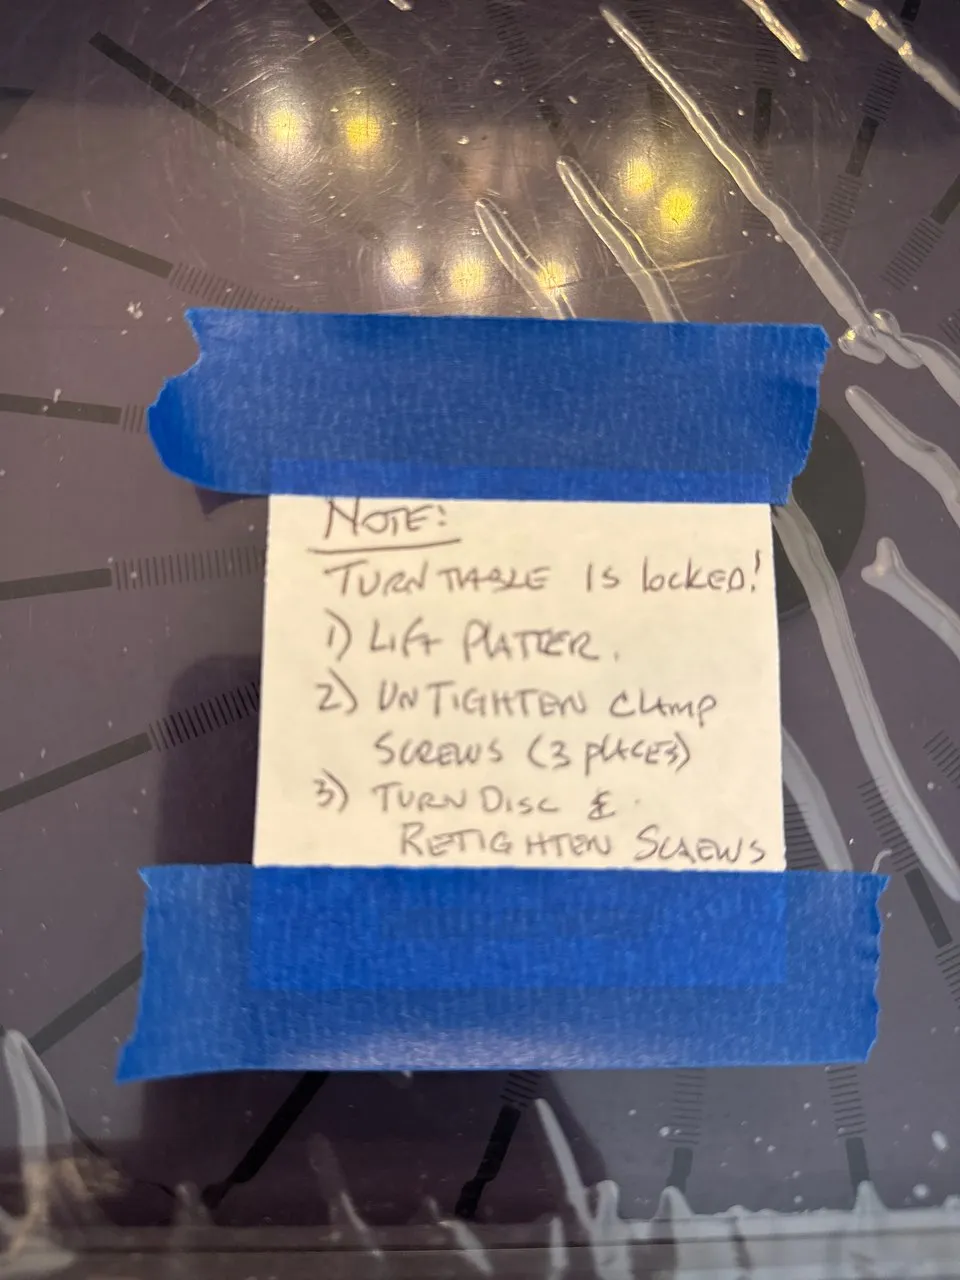 NOTE:
TURNTABLE IS locked!
1) LIFT PLATTER.
2) UNTIGHTEN CLAMP
SCREWS (3 PLACES)
3) TURN DISC &
RETIGHTEN SCREWS